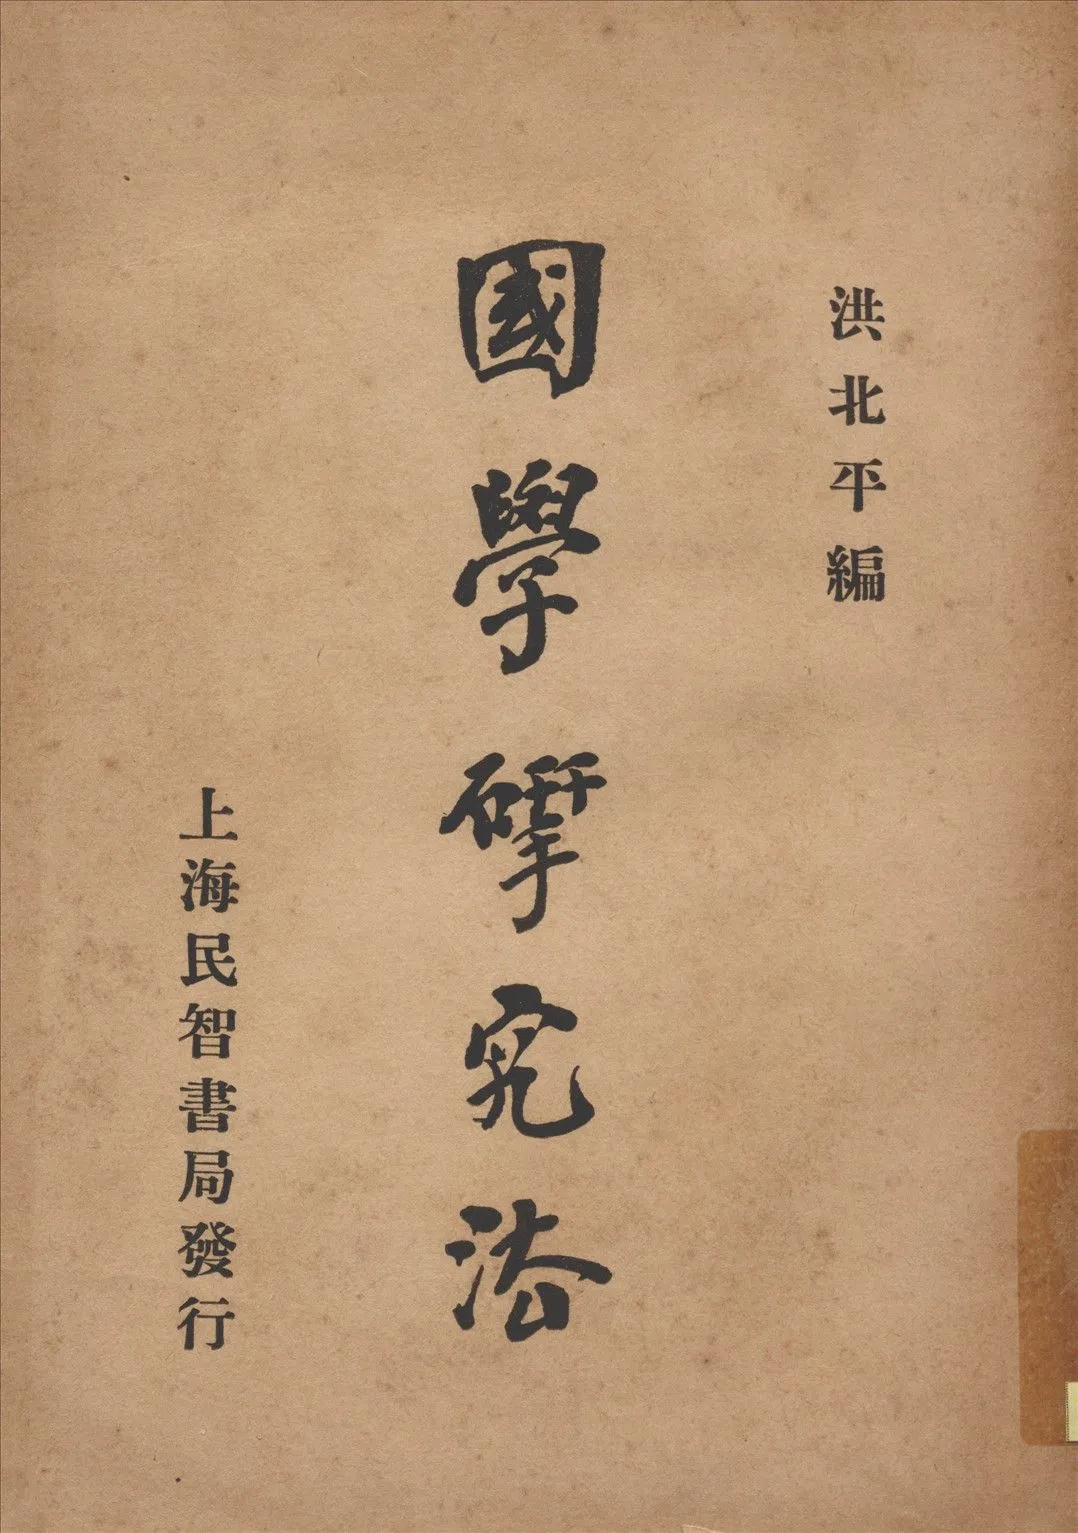 洪北平編
國學揅究法
上海民智書局發行